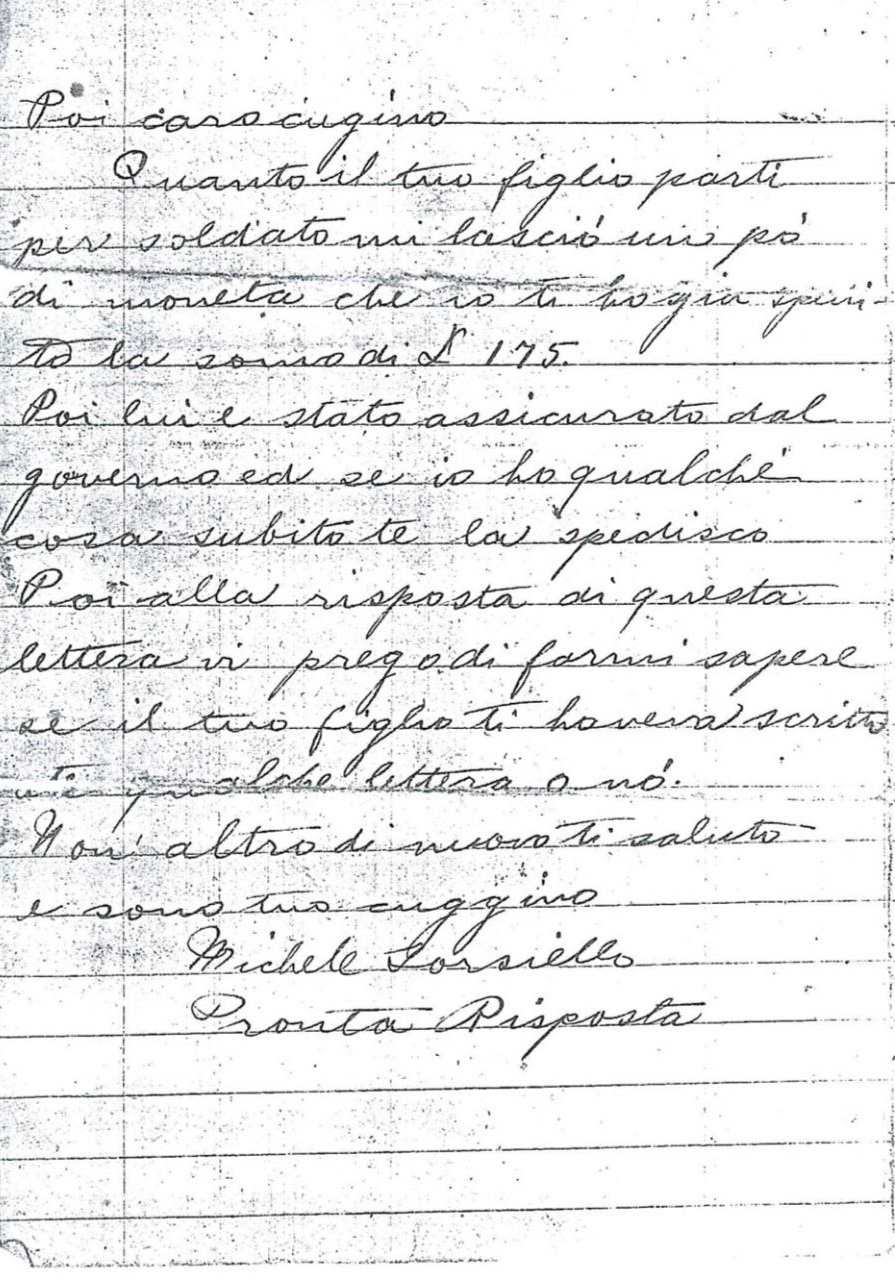 Poi caro cugino
Quanto il tuo figlio partì
per soldato mi lasciò un pò
di moneta che io ti ho gia speri-
to la somo di £ 175.
Poi lui e stato assicurato dal
governo ed se io ho qualche
cosa subito te la spedisco
Poi alla risposta di questa
lettera vi prego di farmi sapere
se il tuo figlio ti haveva scritto
qualche lettera o nó.
Non altro di nuovo ti saluto
e sono tuo cuggino
Michele Torsiello
Pronta Risposta